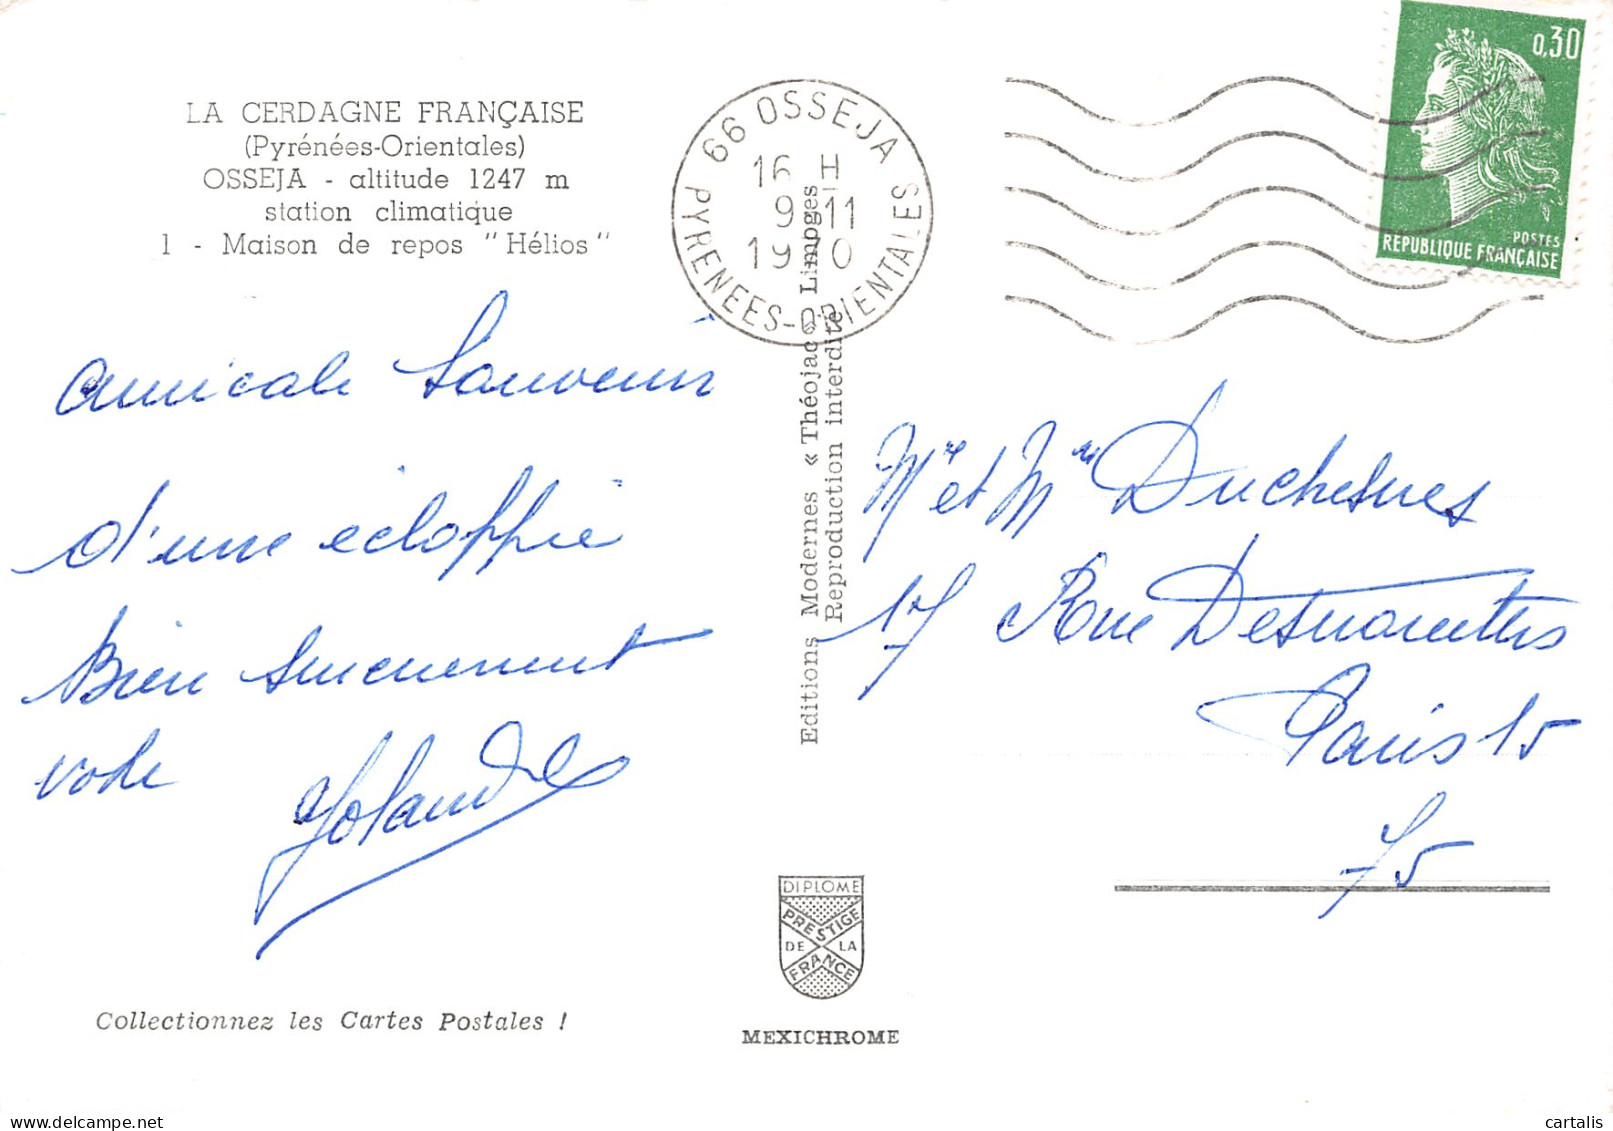 LA CERDAGNE FRANÇAISE
(Pyrénées-Orientales)
OSSEJA - altitude 1247 m
station climatique
1 - Maison de repos "Hélios"
amicale souvenir
d'une écloppée
Bien sincèrement
votre
Yolande
Collectionnez les Cartes Postales !
66 OSSEJA
16 H
9-11
1970
PYRENEES-ORIENTALES
Editions Modernes « Théojac » Limoges
Reproduction interdite
DIPLOME
PRESTIGE
DE LA
FRANCE
MEXICHROME
0,30
POSTES
REPUBLIQUE FRANÇAISE
Mr et Mme Duchesnes
17 Rue Desnouettes
Paris 15
75
cartalis